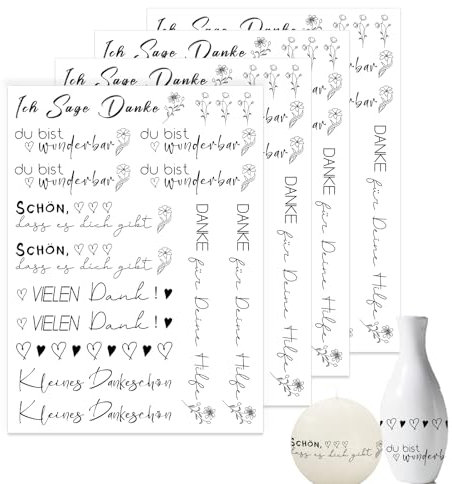 Ich Sage Danke
Ich Sage Danke
Ich Sage Danke
Ich Sage Danke
du bist du bist
wunderbar wunderbar
du bist du bist
wunderbar wunderbar
SCHÖN,
dass es dich gibt
SCHÖN,
dass es dich gibt
VIELEN Dank!
VIELEN Dank!
Kleines Dankeschön
Kleines Dankeschön
DANKE für Deine Hilfe
DANKE für Deine Hilfe
DANKE für Deine Hilfe
DANKE für Deine Hilfe
DANKE für Deine Hilfe
bar
bar
SCHÖN,
dass es dich gibt
du bist
wunderba